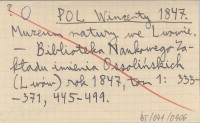 ? O POL Wincenty 1847.
Muzeum natury we Lwowie.
— Biblioteka Naukowego Za-
kładu imienia Ossolińskich
(Lwów) rok 1847, tom 1: 333-
-371, 445-499.
BJ/044/0406